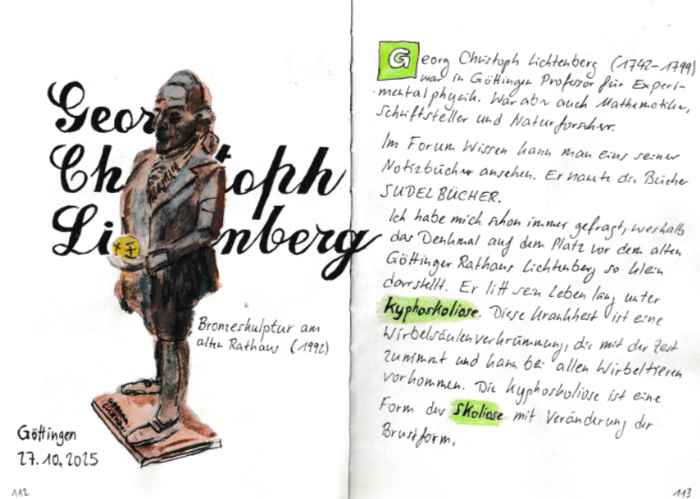 Georg
Christoph
Lichtenberg
Bronzeskulptur am
alten Rathaus (1992)
Göttingen
27.10.2025
112
Georg Christoph Lichtenberg (1742-1799)
war in Göttingen Professor für Experi-
mentalphysik. War aber auch Mathematiker,
Schriftsteller und Naturforscher.
Im Forum Wissen kann man eins seiner
Notizbücher ansehen. Er nannte die Bücher
SUDELBÜCHER.
Ich habe mich schon immer gefragt, weshalb
das Denkmal auf dem Platz vor dem alten
Göttinger Rathaus Lichtenberg so klein
darstellt. Er litt sein Leben lang unter
Kyphoskoliose. Diese Krankheit ist eine
Wirbelsäulenverkrümmung, die mit der Zeit
zunimmt und kann bei allen Wirbeltieren
vorkommen. Die Kyphoskoliose ist eine
Form der Skoliose mit Veränderung der
Brustform.
113